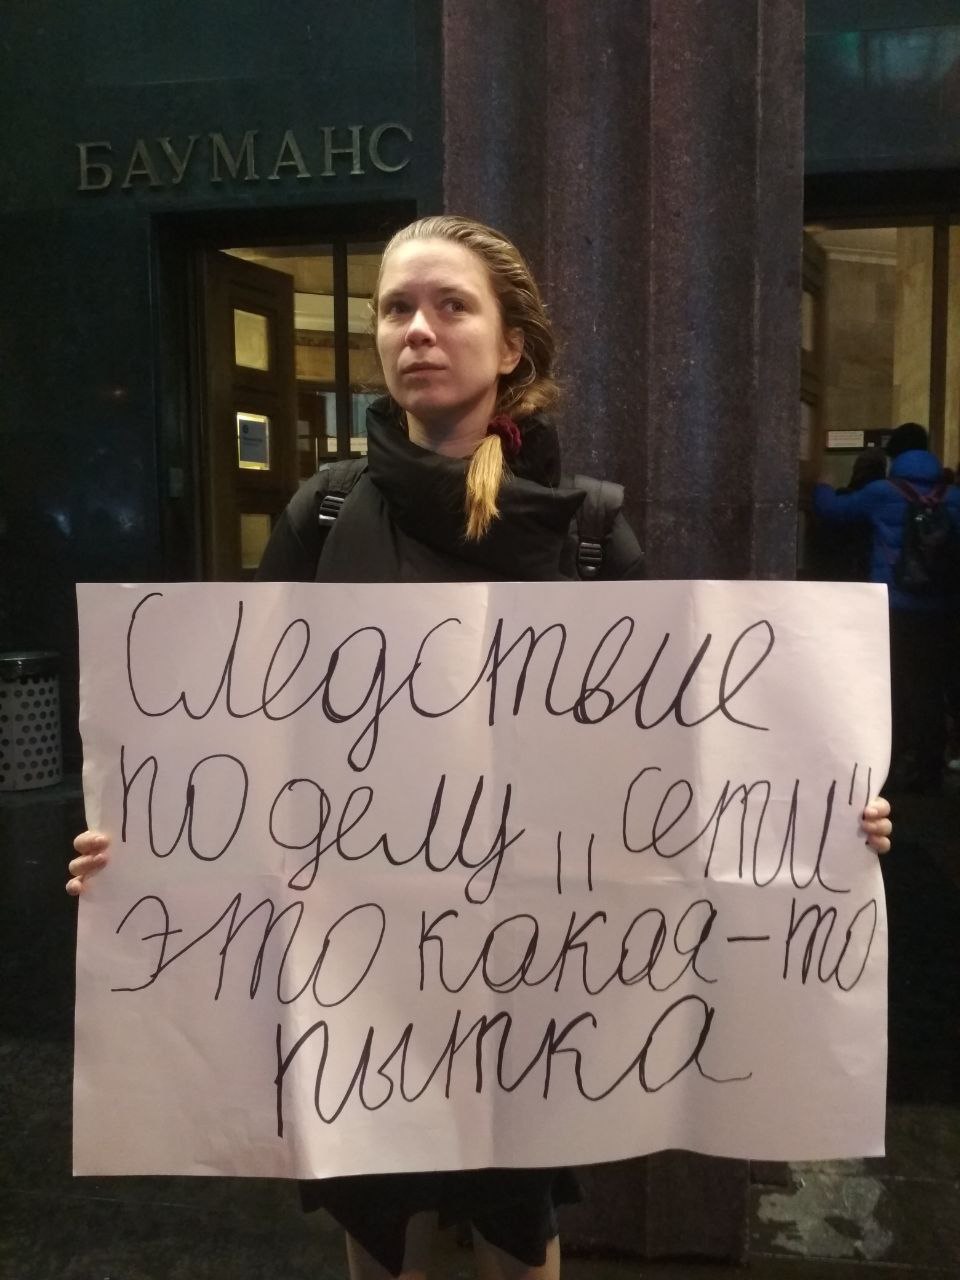 БАУМАНС
Следствие
по делу „сети"
это какая-то
пытка